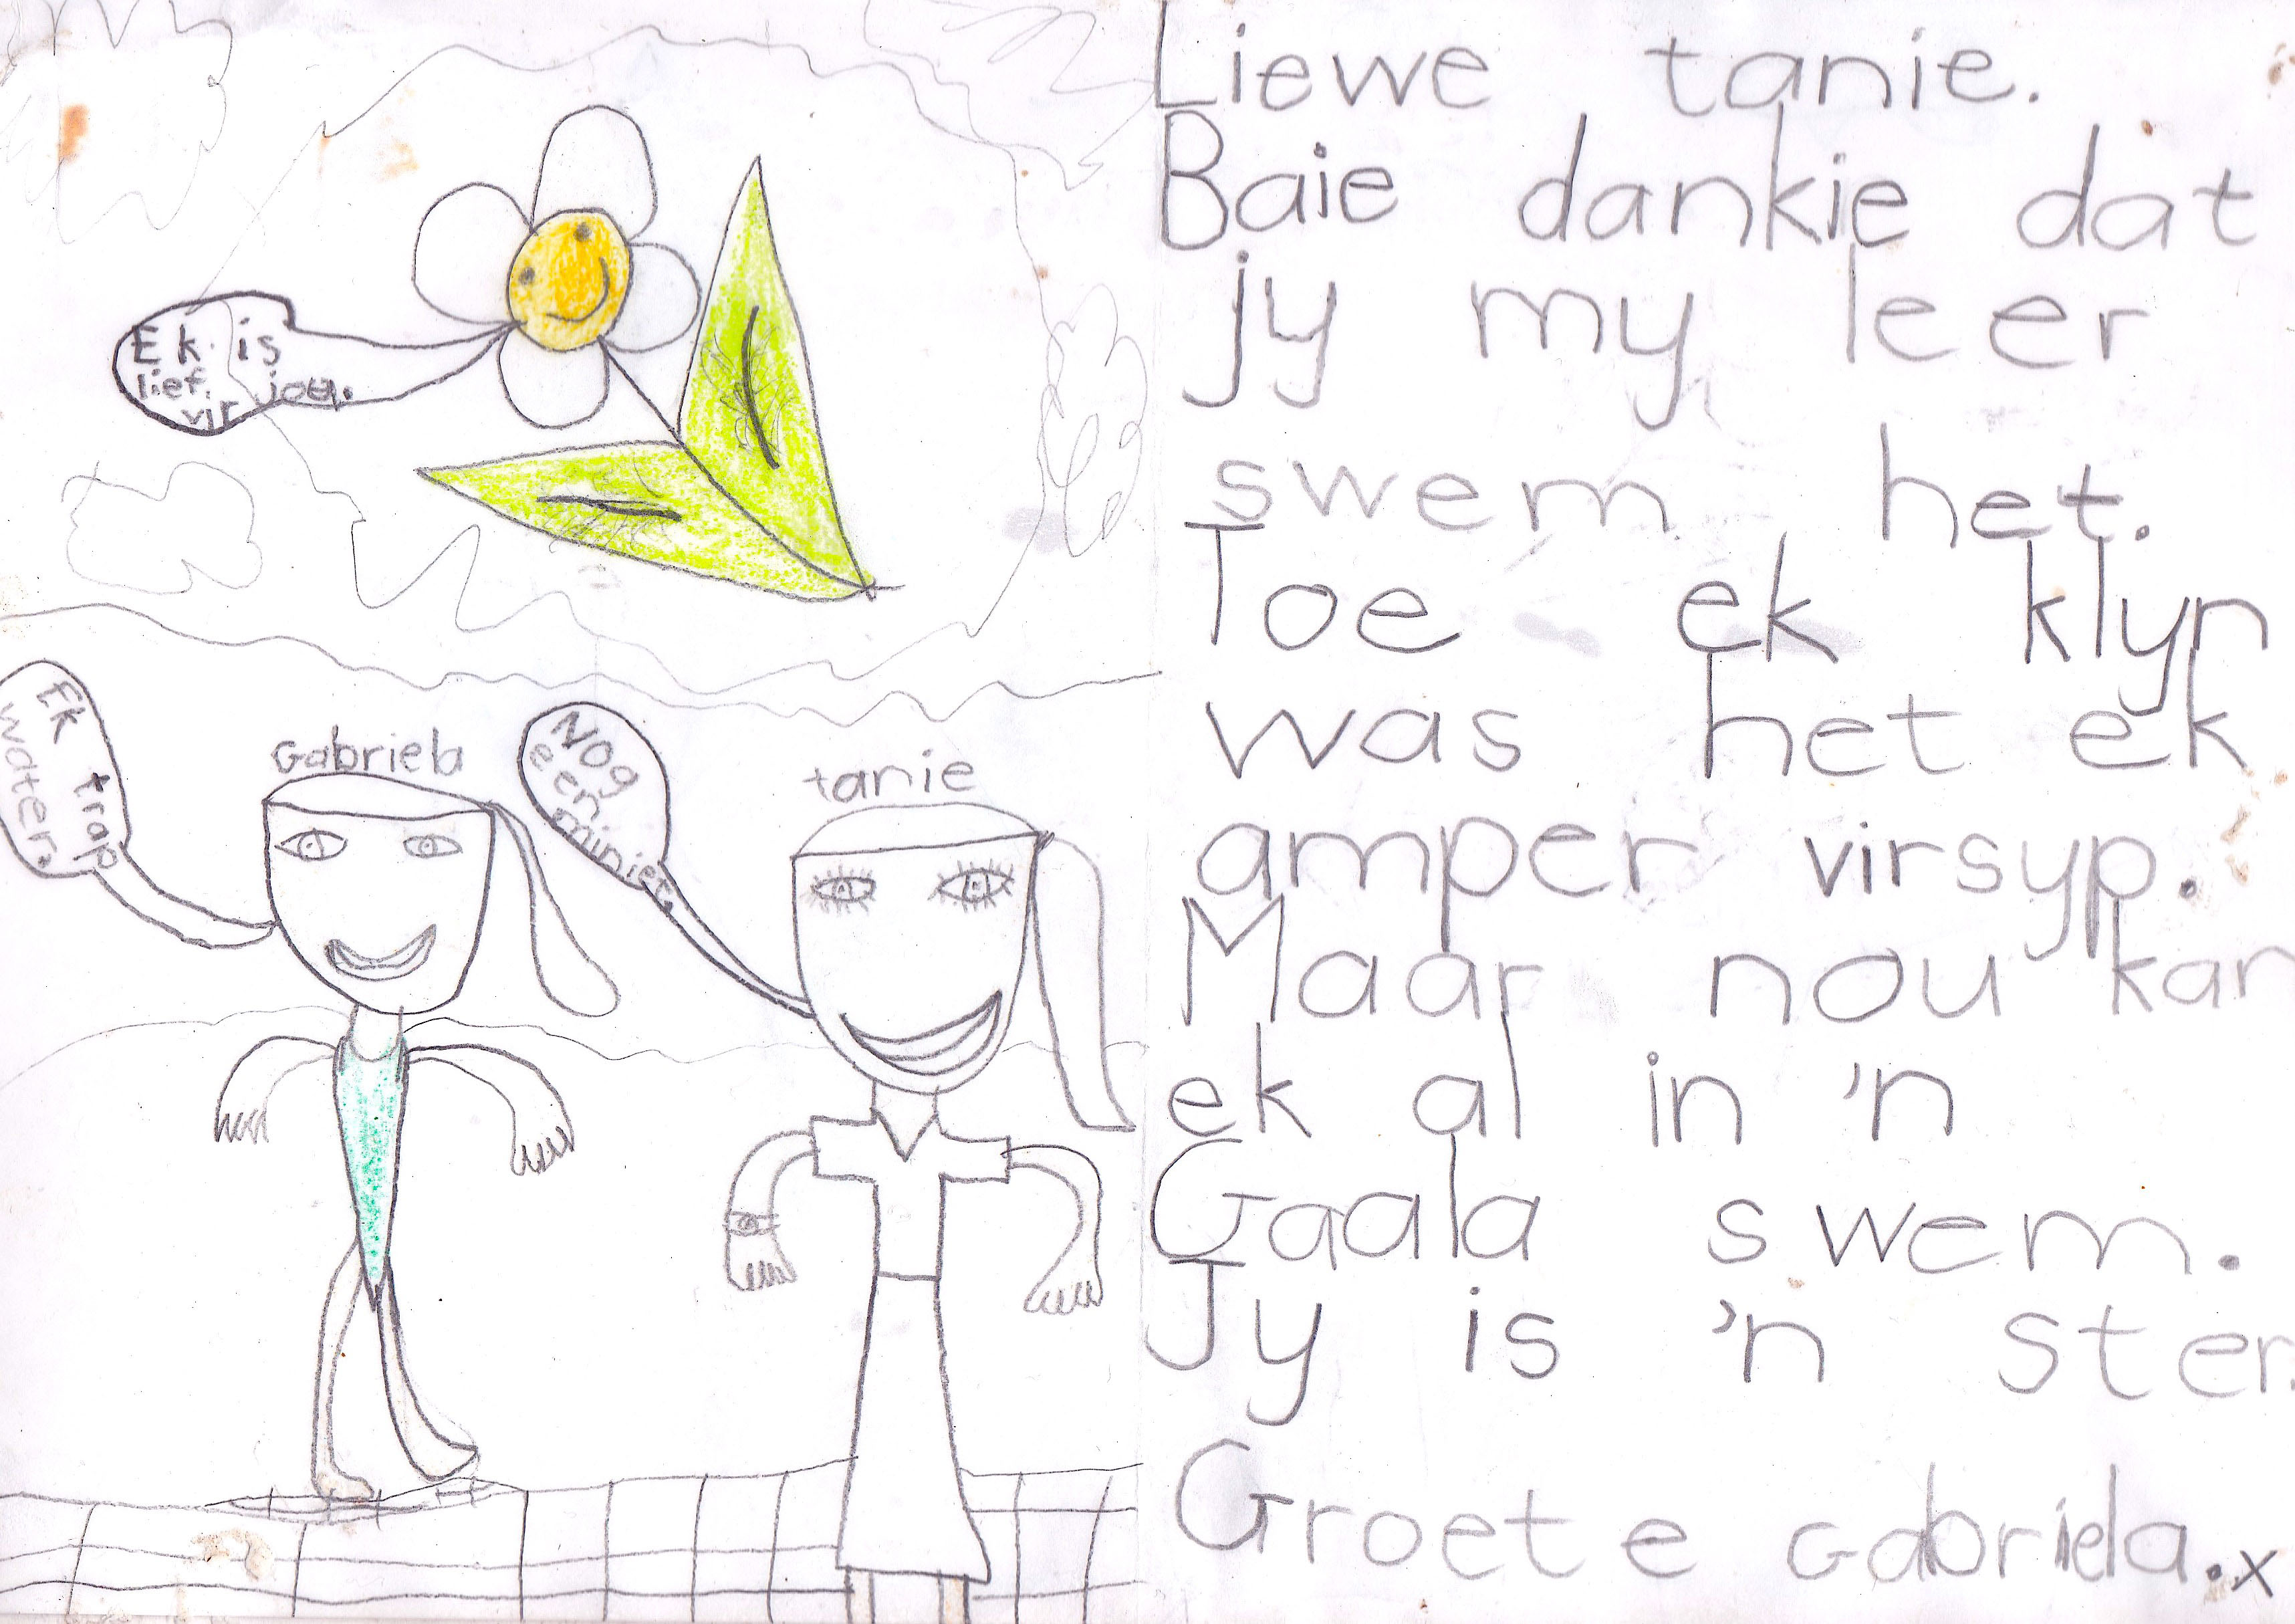 Ek is
lief
vir jou.
Ek trap
water.
Gabriela
Nog
een
miniet
tanie
Liewe tanie.
Baie dankie dat
jy my leer
swem het.
Toe ek klyn
was het ek
amper virsyp.
Maar nou kan
ek al in 'n
Gaala swem.
Jy is 'n ster.
Groete Gabriela.x